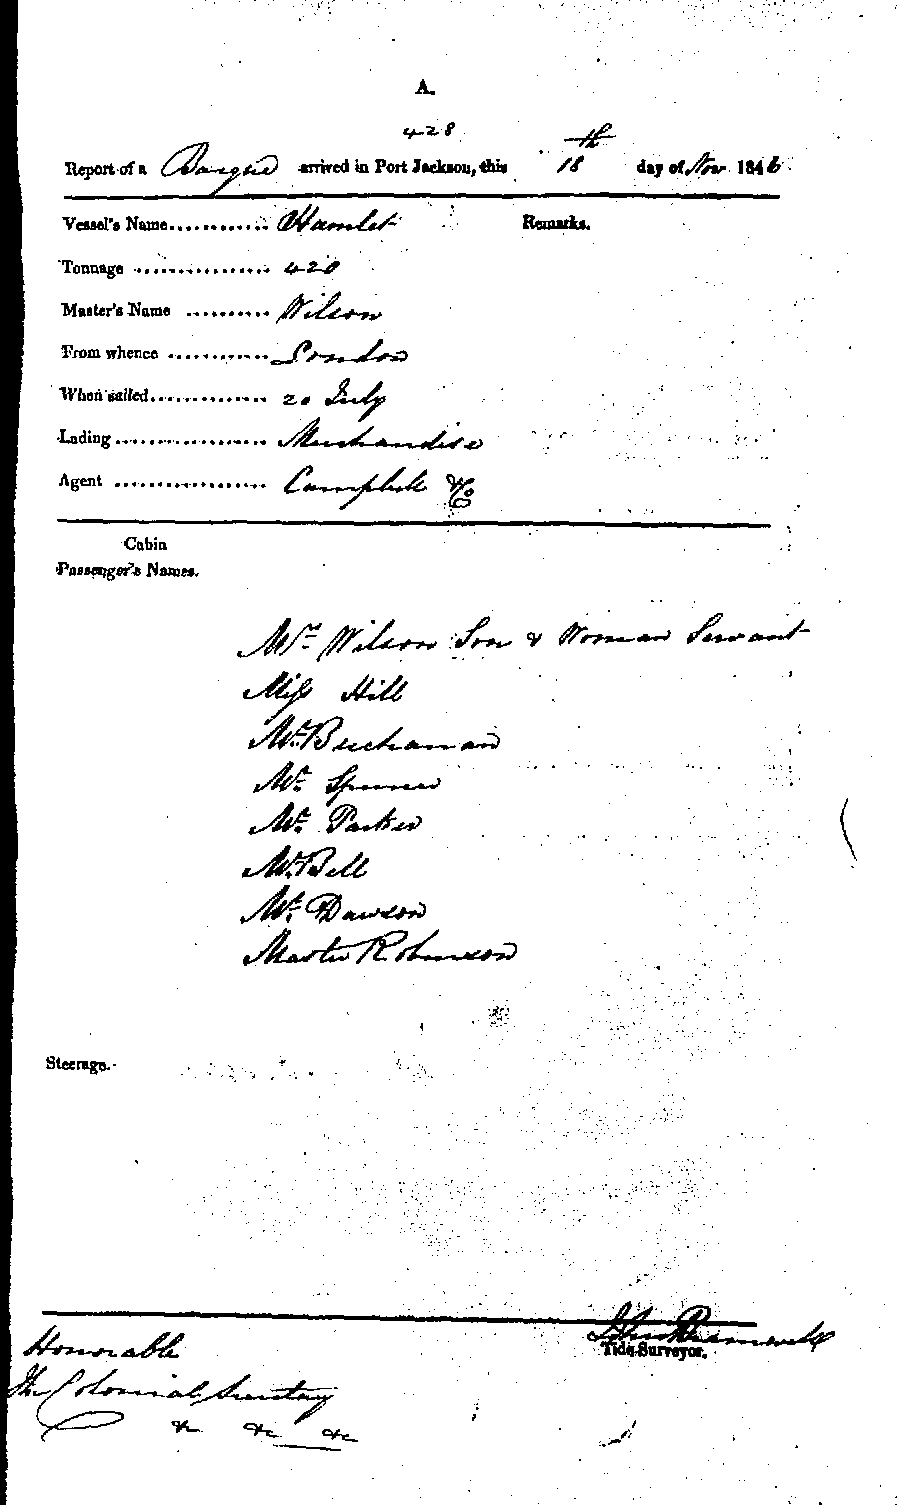 A.
428
Report of a Barque arrived in Port Jackson, this 18th day of Nov 1846
Vessel's Name............ Hamlet Remarks.
Tonnage ................ 420
Master's Name .......... Wilson
From whence ............ London
When sailed.............. 20 July
Lading.................. Merchandise
Agent .................. Campbell & Co
Cabin
Passenger's Names.
Mrs Wilson Son & Woman Servant
Miss Hill
Mr. Buchanan
Mr. Spencer
Mr. Parker
Mr. Bell
Mr. Dawson
Master Robinson
Steerage.
John
Tide-Surveyor.
Honorable
The Colonial Secretary
&c &c &c